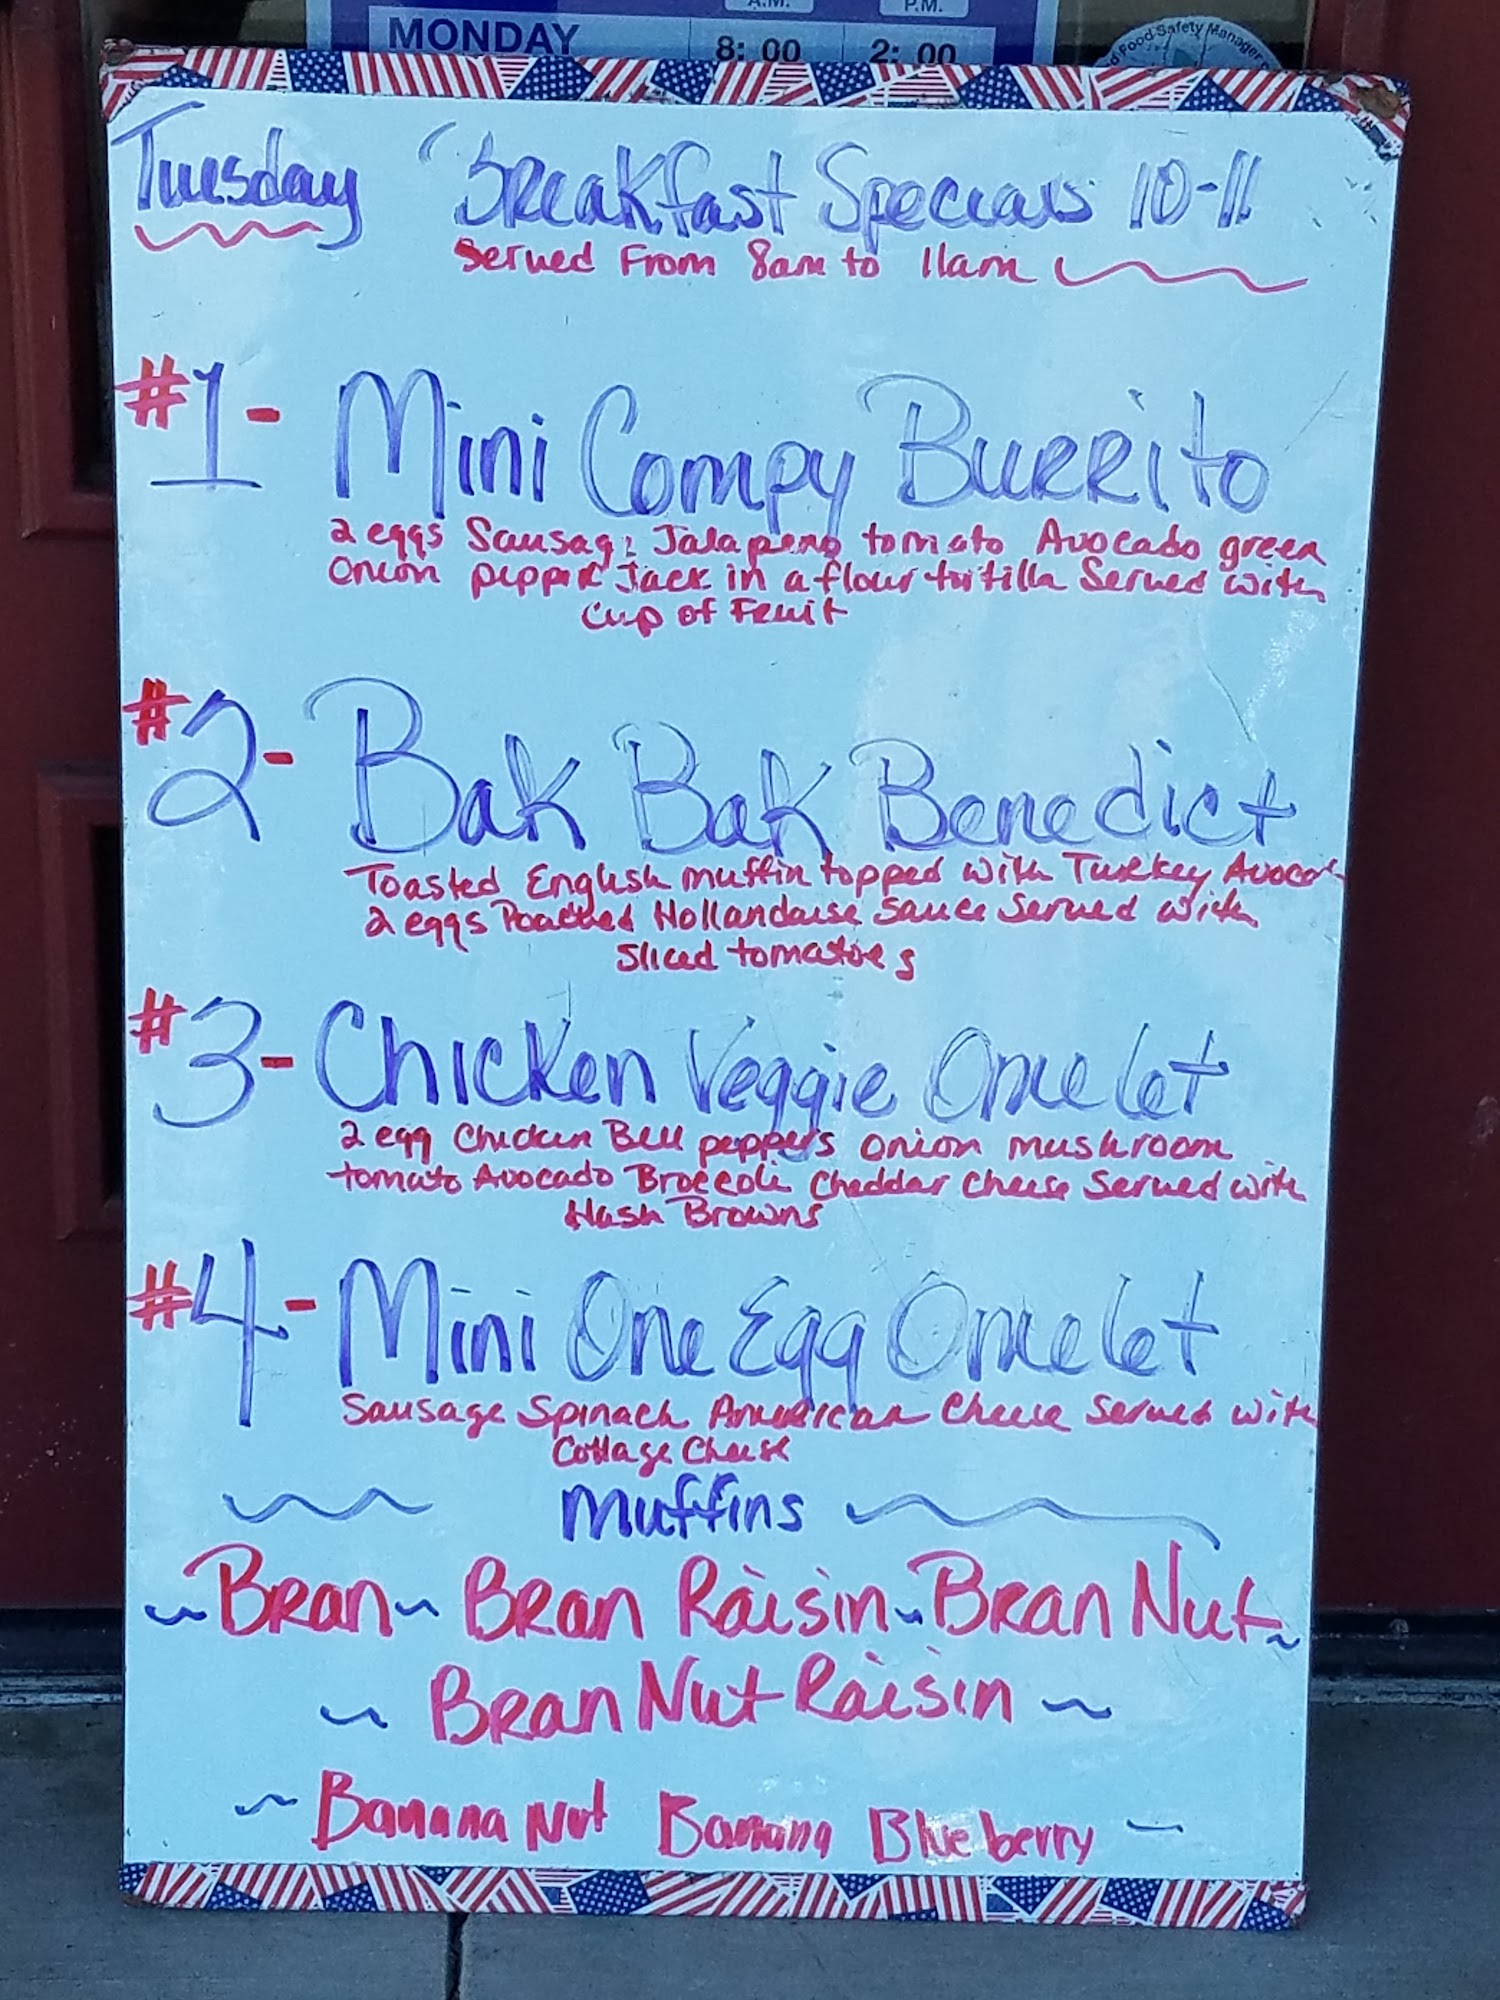 A.M. P.M.
MONDAY 8:00 2:00
d Food Safety Manager
Tuesday Breakfast Specials 10-11
Served From 8am to 11am
#1- Mini Compy Burrito
2 eggs Sausage Jalapeno tomato Avocado green
onion pepper Jack in a flour tortilla Served with
Cup of Fruit
#2- Bak Bak Benedict
Toasted English muffin topped with Turkey Avocad
2 eggs Poached Hollandaise Sauce Served with
Sliced tomatoes
#3- Chicken Veggie Omelet
2 egg Chicken Bell peppers onion mushroom
tomato Avocado Broccoli Cheddar Cheese Served with
Hash Browns
#4- Mini One Egg Omelet
Sausage Spinach American Cheese Served with
Cottage Cheese
Muffins
~Bran~ Bran Raisin~Bran Nut~
~ Bran Nut Raisin ~
~ Banana Nut Banana Blueberry ~